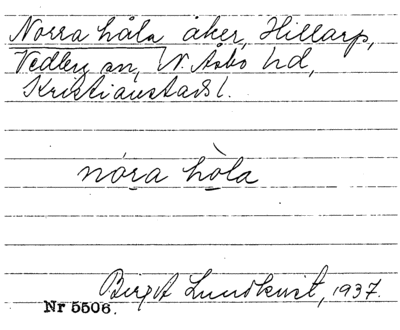 Norra håla åker, Hillarp,
Vedby sn, N. Åsbo hd,
Kristianstads l.
nóra hòla
Birgit Lundkvist, 1937.
Nr 5506.